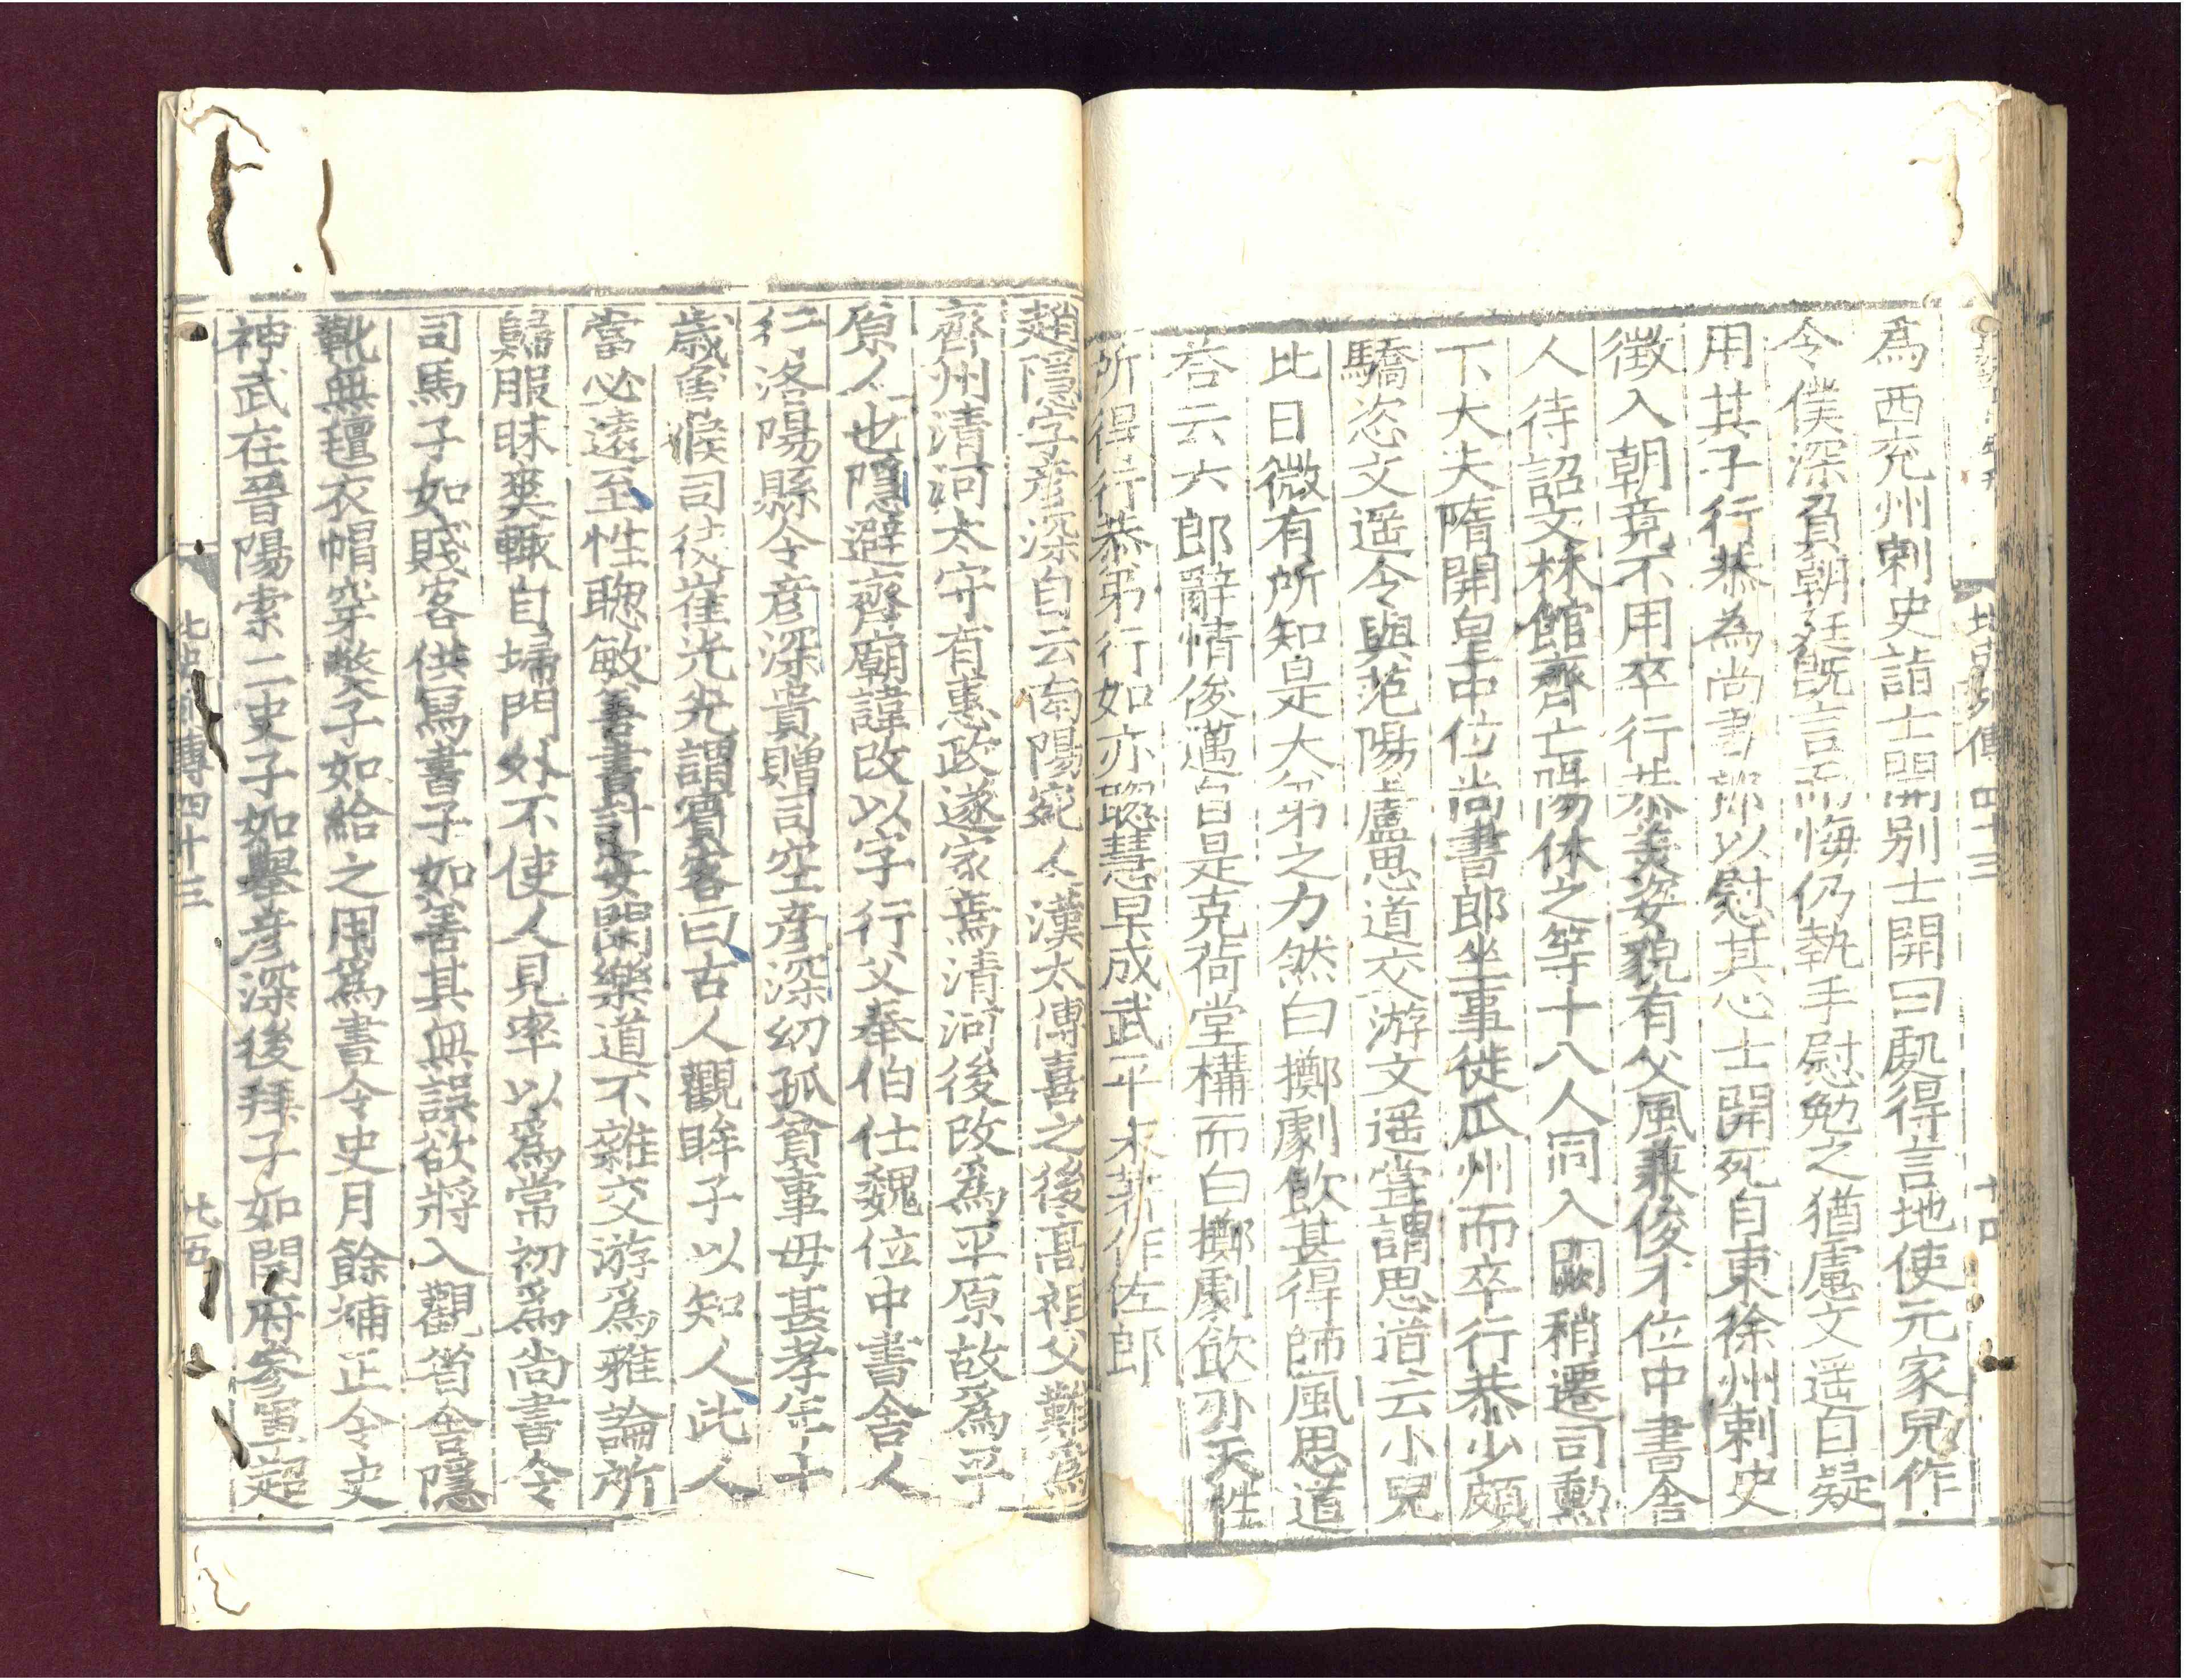 北史列傳四十三
十四
爲西兖州刺史詣士開别士開曰處得言地使元家兒作
令僕深負朝廷旣言而悔仍執手慰勉之猶慮文遥自疑
用其子行恭爲尚書郎以慰其心士開死自東徐州刺史
徵入朝竟不用卒行恭美姿貌有父風兼俊才位中書舍
人待詔文林館齊亡陽休之等十八人同入關稍遷司勳
下大夫隋開皇中位尚書郎坐事徙瓜州而卒行恭少頗
驕恣文遥令與范陽盧思道交游文遥嘗謂思道云小兒
比日微有所知是大弟之力然白擲劇飲甚得師風思道
荅云六郎辭情俊邁自是克荷堂構而白擲劇飲亦天性
所得行恭弟行如亦聰慧早成武平末著作佐郎
趙隱字彦深自云南陽宛人漢太傅喜之後髙祖父難爲
齊州清河太守有惠政遂家焉清河後改爲平原故爲平
原人也隱避齊廟諱改以字行父奉伯仕魏位中書舍人
行洛陽縣令彦深貴贈司空彦深幼孤貧事母甚孝年十
歳曾候司徒崔光光謂賓客曰古人觀眸子以知人此人
當必遠至性聰敏善書計安閑樂道不雜交游爲雅論所
歸服昧爽輒自埽門外不使人見率以爲常初爲尚書令
司馬子如賤客供寫書子如善其無誤欲將入觀省舍隱
靴無氊衣帽穿弊子如給之用爲書令史月餘補正令史
神武在晉陽索二史子如舉彦深後拜子如開府參軍超
北史列傳四十三